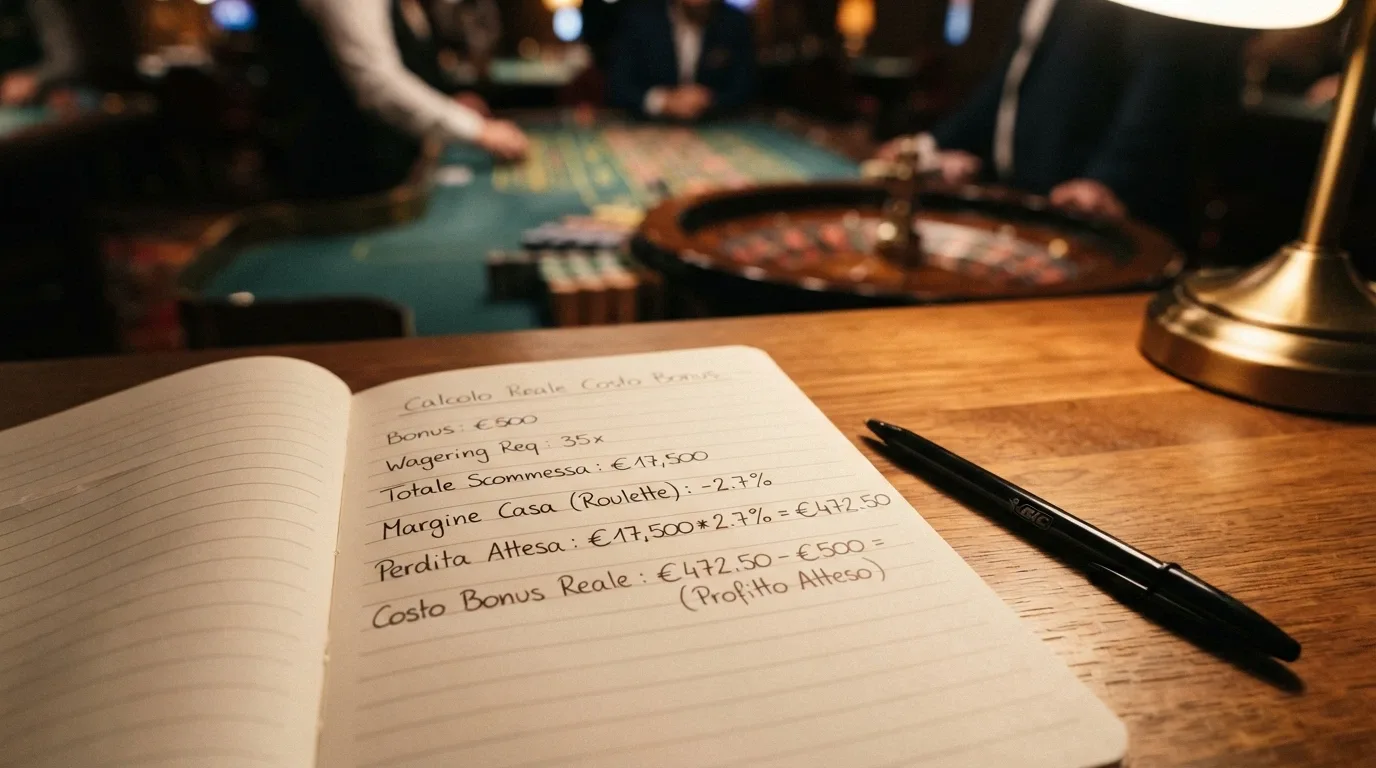 Calcolo Reale Costo Bonus
Bonus: €500
Wagering Req: 35x
Totale Scommessa: €17,500
Margine Casa (Roulette): -2.7%
Perdita Attesa: €17,500*2.7% = €472.50
Costo Bonus Reale: €472.50 - €500 =
(Profitto Atteso)
BIC